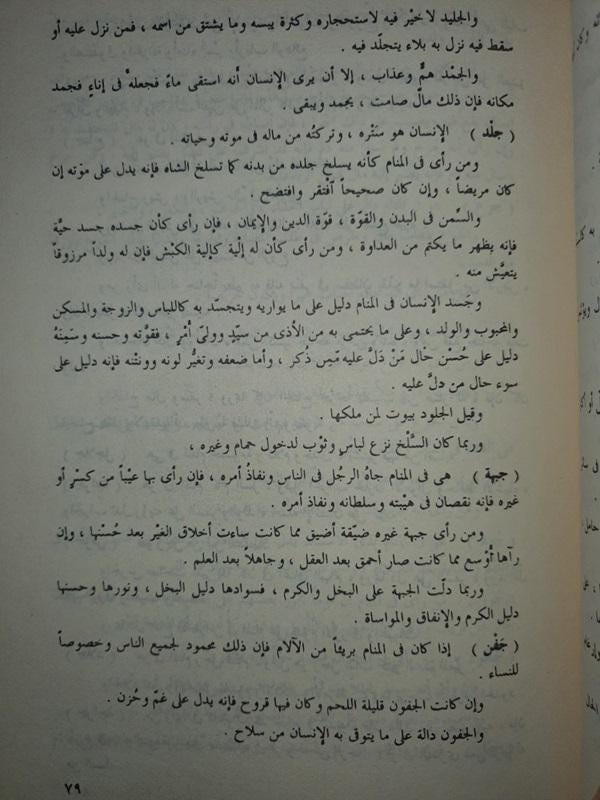 والجليد لا خيْر فيه لاستحجاره وكثرة يبسه وما يشتق من اسمه ، فمن نزل عليه أو
سقط فيه نزل به بلاء يتجلّد فيه .
والجمْد همٌّ وعذاب ، إلا أن يرى الإنسان أنه استقى ماءً فجعله فى إناءٍ فجمد
مكانه فإن ذلك مالٌ صامت ، يجمد ويبقى .
( جلْد ) الإنسان هو سَتْره ، وتركتُه من ماله فى موته وحياته .
ومن رأى فى المنام كأنه يسلخ جلده من بدنه كما تسلخ الشاه فإنه يدل على موْته إن
كان مريضاً ، وإن كان صحيحاً آفْتقر وافتضح .
والسِّمن فى البدن والقوّة ، قوّة الدين والإيمان ، فإن رأى كأن جسده جسد حيَّة
فإنه يظهر ما يكتم من العداوة ، ومن رأى كأن له إلْية كإلية الكبْش فإن له ولداً مرزوقاً
يتعيَّش منه .
وجَسد الإنسان فى المنام دليل على ما يواريه ويتجسّد به كاللباس والزوجة والمسكن
والمحبوب والولد ، وعلى ما يحتمى به من الأذى من سيّدٍ ووليّ أمْرٍ ، فقوَّته وحسنه وسَمِنَهُ
دليل على حُسْن حَال مَنْ دَلَّ عليه مِمن ذُكر ، وأما ضعفه وتغيُّر لونه ونتْنه فإنه دليل على
سوء حال من دلَّ عليه .
وقيل الجلود بيوت لمن ملكها .
وربما كان السَّلْخ نزع لباسٍ وثوْب لدخول حمام وغيره ،
( جبهة ) هى فى المنام جاهُ الرجُل فى الناس ونفاذُ أمره ، فإن رأى بها عيْباً من كسْرٍ أو
غيره فإنه نقصان فى هيْبته وسلطانه ونفاذ أمره .
ومن رأى جبهة غيره ضيّقة أضيق مما كانت ساءت أخلاق الغيْر بعد حُسْنها ، وإن
رآها أوْسع مما كانت صار أحمق بعد العقل ، وجاهلاً بعد العلم .
وربما دلّت الجبهة على البخل والكرم ، فسوادها دليل البخل ، ونورها وحسنها
دليل الكرم والإنفاق والمواساة .
( جَفْن ) إذا كان فى المنام بريئاً من الآلام فإن ذلك محمود لجميع الناس وخصوصاً
للنساء .
وإن كانت الجفون قليلة اللحم وكان فيها قروح فإنه يدل على غمّ وحُزن .
والجفون دالة على ما يتوقى به الإنسان من سلاح .
٧٩